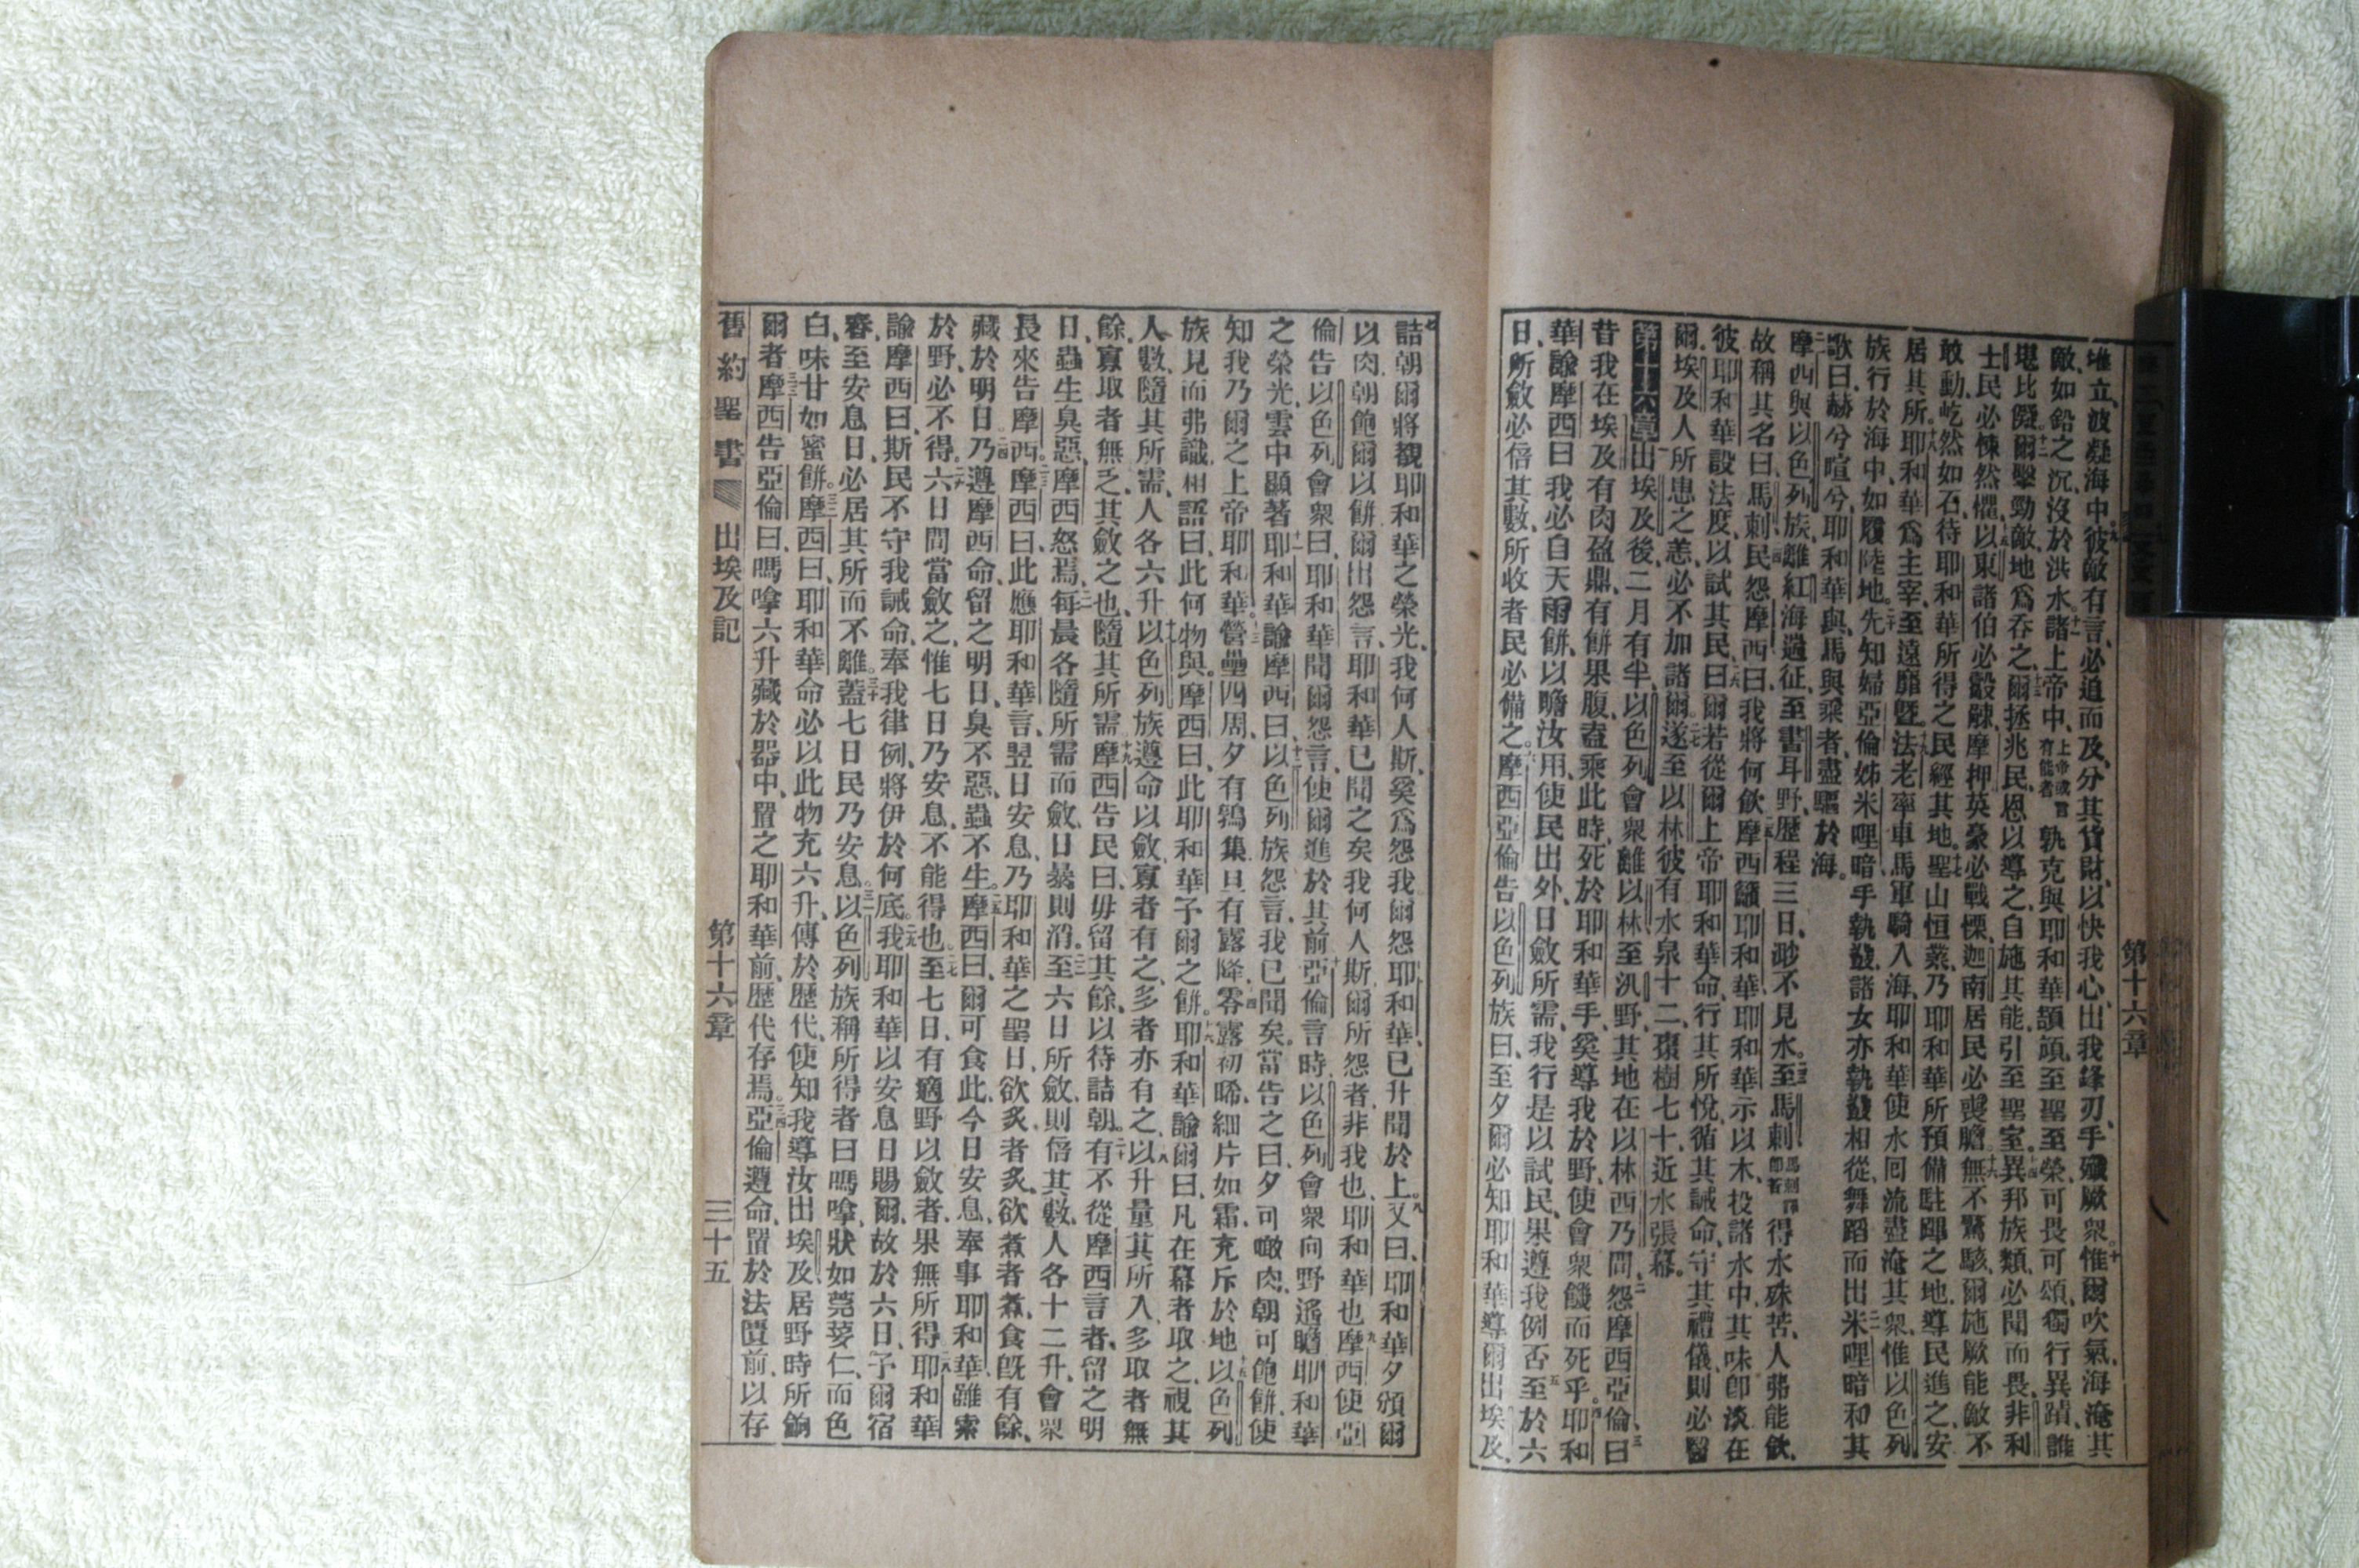 堆立、波凝海中、九彼敵有言、必追而及、分其貨財、以快我心、出我鋒刃、手殲厥衆。十惟爾吹氣、海淹其
敵、如鉛之沉、沒於洪水。十一諸上帝中、上帝或言有能者孰克與耶和華頡頏、至聖至榮、可畏可頌、獨行異蹟、誰
堪比儗。十二爾擊勁敵、地爲吞之、十三爾拯兆民、恩以導之、自施其能、引至聖室。十四異邦族類、必聞而畏、非利
士民、必悚然懼、十五以東諸伯、必觳觫、摩押英豪、必戰慄、迦南居民、必喪膽、十六無不驚駭、爾施厥能、敵不
敢動、屹然如石、待耶和華所得之民、經其地。十七聖山恒業、乃耶和華所預備駐蹕之地、導民進之、安
居其所。十八耶和華爲主宰、至遠靡曁。十九法老率車馬軍騎入海、耶和華使水囘流、盡淹其衆、惟以色列
族行於海中、如履陸地。二十先知婦亞倫姊米哩暗、手執鼗、諸女亦執鼗相從、舞蹈而出、二一米哩暗和其
歌曰、赫兮喧兮、耶和華與、馬與乘者、盡驅於海。
二二摩西與以色列族離紅海遄征、至書耳野、歷程三日、渺不見水。二三至馬剌馬剌譯卽苦得水殊苦、人弗能飲、
故稱其名曰馬剌、二四民怨摩西曰、我將何飲、二五摩西籲耶和華、耶和華示以木、投諸水中、其味卽淡、在
彼耶和華設法度、以試其民、二六曰、爾若從爾上帝耶和華命、行其所悅、循其誡命、守其禮儀、則必醫
爾、埃及人所患之恙、必不加諸爾。二七遂至以林、彼有水泉十二、棗樹七十、近水張幕。
第十六章一出埃及後、二月有半、以色列會衆離以林、至汎野、其地在以林西乃間、二怨摩西亞倫曰、三
昔我在埃及、有肉盈鼎、有餅果腹、盍乘此時、死於耶和華手、奚導我於野、使會衆饑而死乎。四耶和
華諭摩西曰、我必自天雨餅、以贍汝用、使民出外、日斂所需、我行是以試民、果遵我例否、五至於六
日、所斂必倍其數、所收者民必備之。六摩西亞倫告以色列族曰、至夕爾必知耶和華導爾出埃及、
七詰朝爾將覩耶和華之榮光、我何人斯、奚爲怨我、爾怨耶和華、已升聞於上。八又曰、耶和華夕頒爾
以肉、朝飽爾以餅、爾出怨言、耶和華已聞之矣、我何人斯、爾所怨者、非我也、耶和華也。九摩西使亞
倫告以色列會衆曰、耶和華聞爾怨言、使爾進於其前、十亞倫言時、以色列會衆向野遙瞻、耶和華
之榮光、雲中顯著、十一耶和華諭摩西曰、十二以色列族怨言、我已聞矣。當告之曰、夕可噉肉、朝可飽餅、使
知我乃爾之上帝耶和華。十三營壘四周、夕有鶉集、旦有露降、十四零露初晞、細片如霜、充斥於地、十五以色列
族見而弗識、相語曰、此何物與。摩西曰、此耶和華予爾之餅。十六耶和華諭爾曰、凡在幕者取之、視其
人數、隨其所需、人各六升、十七以色列族遵命以斂、寡者有之、多者亦有之、十八以升量其所入、多取者無
餘、寡取者無乏、其斂之也、隨其所需、十九摩西告民曰、毋留其餘、以待詰朝。二十有不從摩西言者、留之明
日、蟲生臭惡、摩西怒焉、二一每晨各隨所需而斂、日暴則消。二二至六日所斂、則倍其數、人各十二升、會衆
長來告摩西。二三摩西曰、此應耶和華言、翌日安息、乃耶和華之聖日、欲炙者炙、欲煮者煮、食旣有餘、
藏於明日。二四乃遵摩西命、留之明日、臭不惡、蟲不生。二五摩西曰、爾可食此、今日安息、奉事耶和華、雖索
於野、必不得。二六六日間當斂之、惟七日乃安息、不能得也。二七至七日、有適野以斂者、果無所得、二八耶和華
諭摩西曰、斯民不守我誡命、奉我律例、將伊於何底。二九我耶和華以安息日賜爾、故於六日、予爾宿
舂、至安息日、必居其所而不離。三十蓋七日民乃安息。三一以色列族稱所得者曰嗎嗱、狀如莞荽仁、而色
白、味甘如蜜餅。三二摩西曰、耶和華命必以此物充六升、傳於歷代、使知我導汝出埃及、居野時所餉
爾者、三三摩西告亞倫曰、嗎嗱六升藏於器中、置之耶和華前、歷代存焉。三四亞倫遵命、置於法匱前、以存
舊約聖書 出埃及記 第十六章 三十五
第十六章